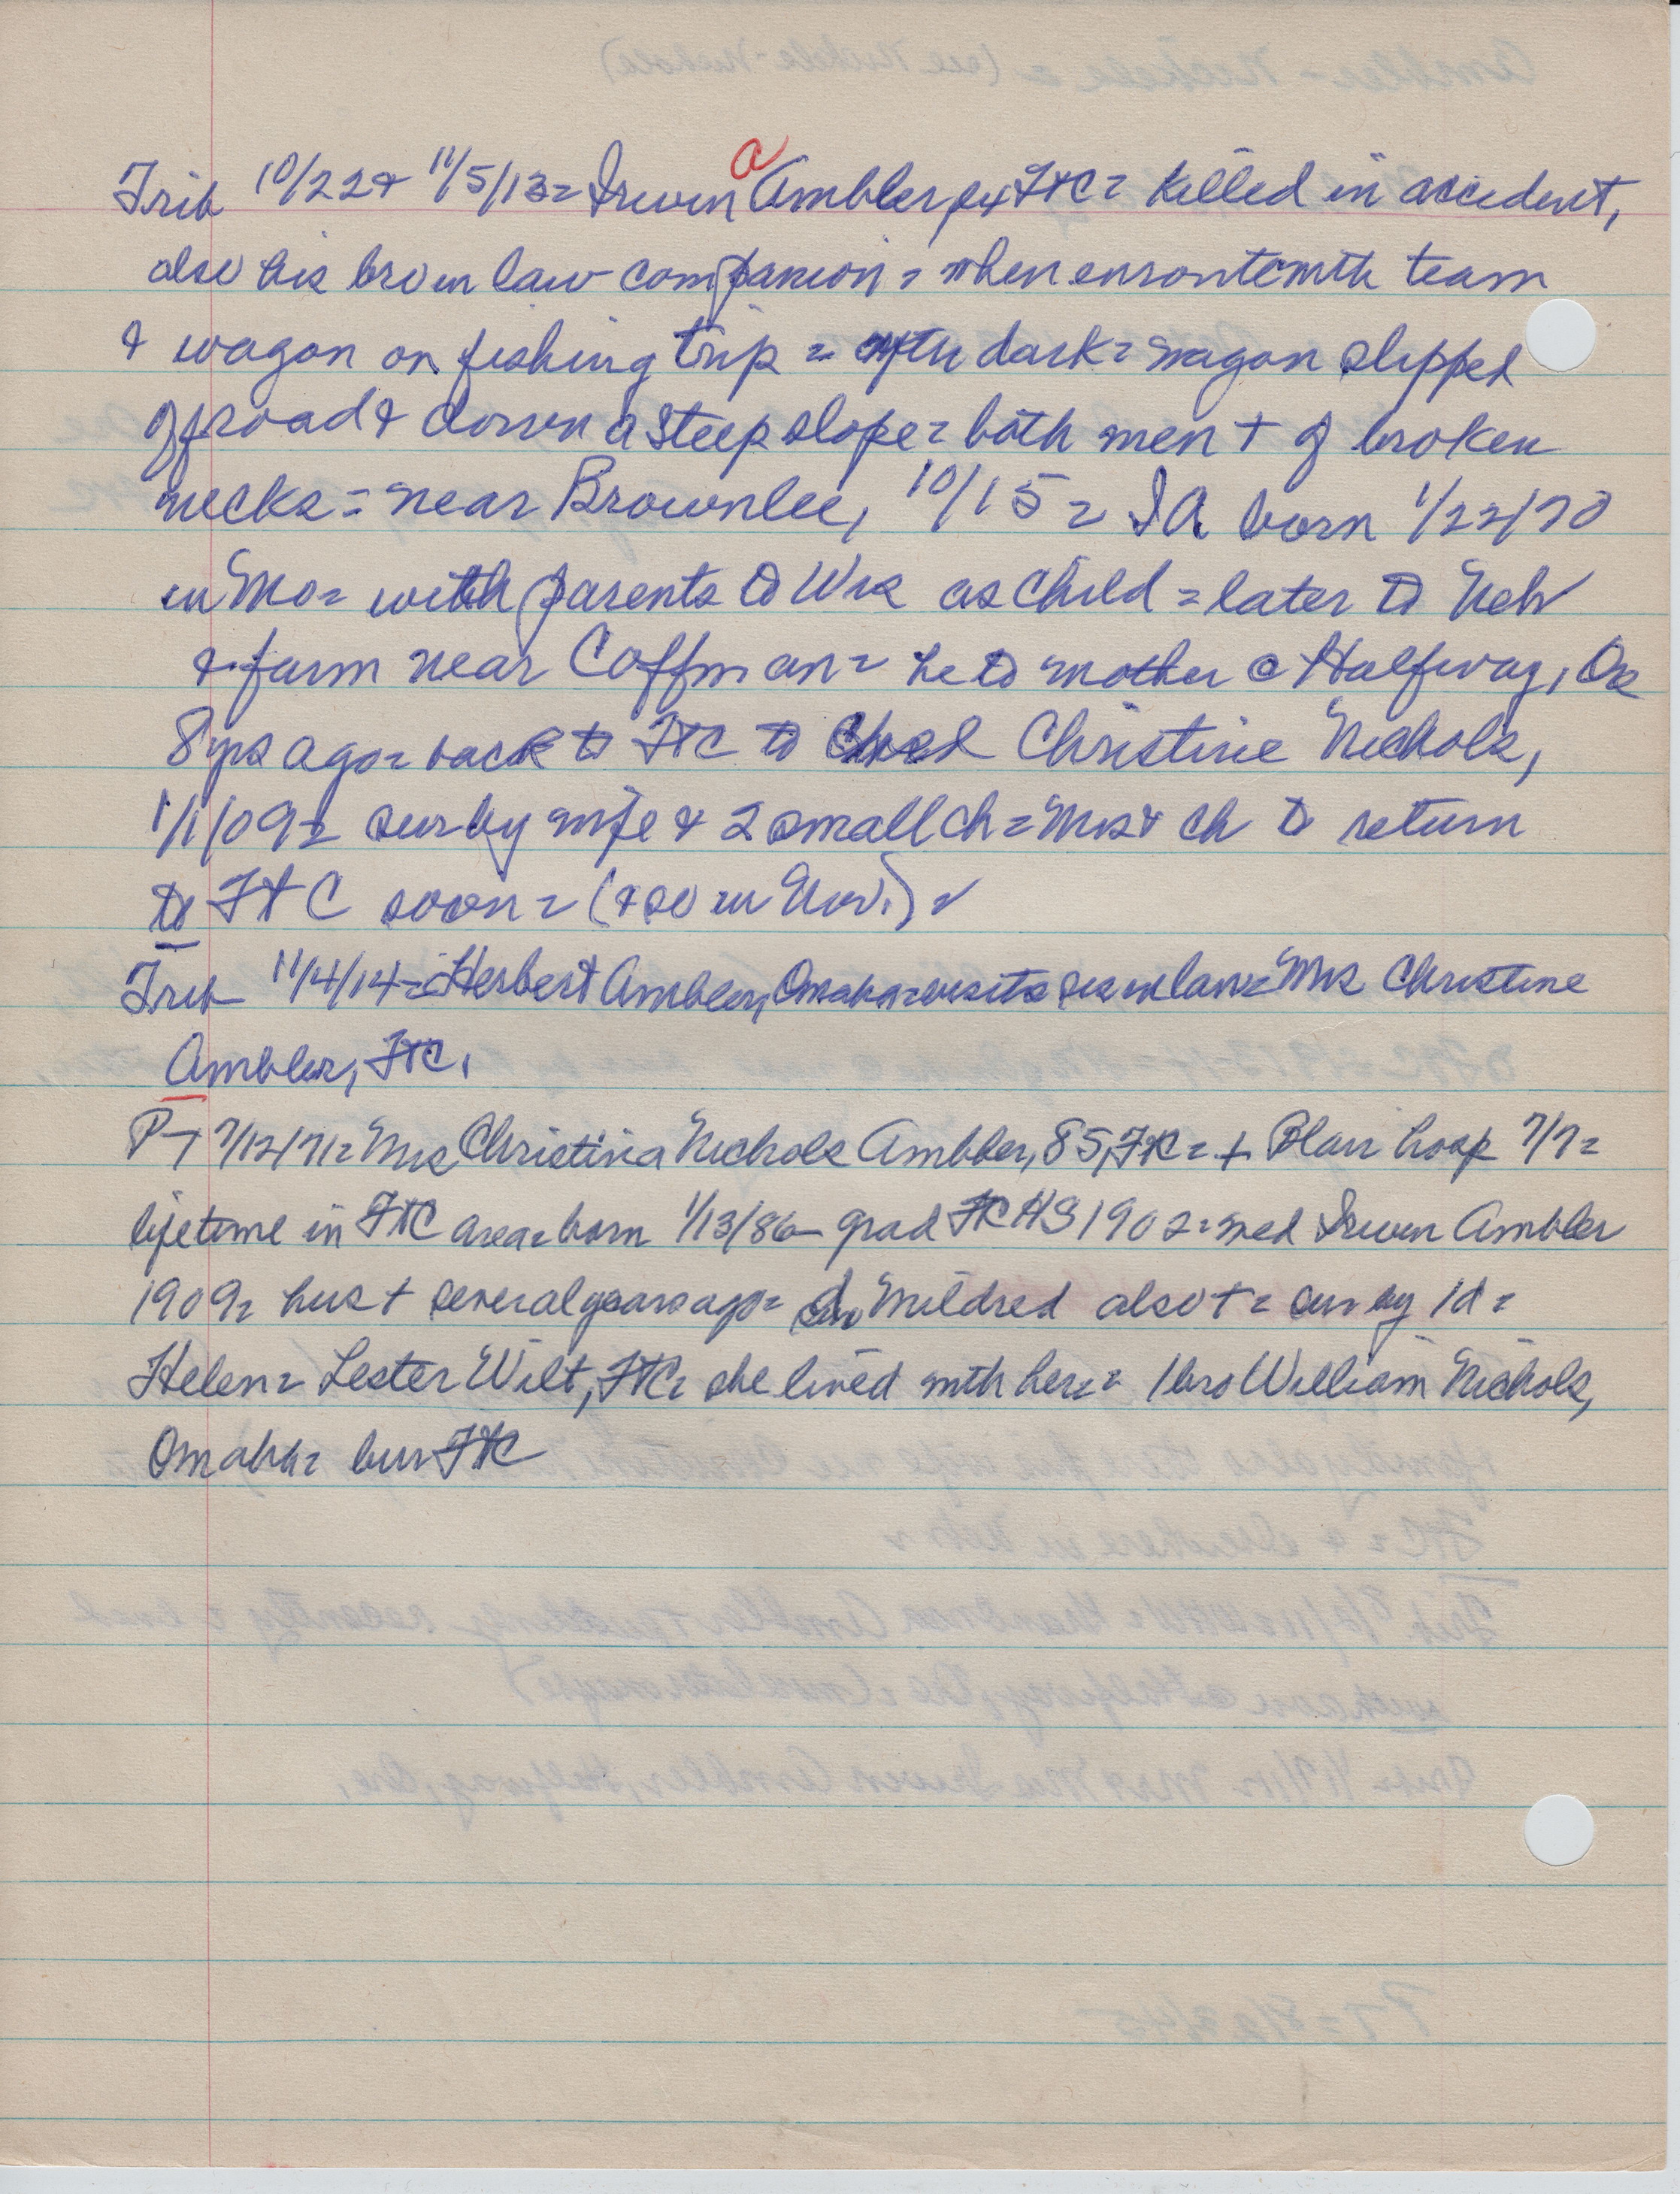 a
Trib 10/22 & 11/5/13 = Irwin Ambler, ex FtC = killed in accident,
also his bro in law companion = when enroute with team
& wagon on fishing trip = after dark = wagon slipped
off road & down a steep slope = both men + of broken
necks = near Brownlee, 10/15 = IA born 1/22/70
in Mo = with parents to Wis as child = later to Neb
& farm near Coffman = he to mother @ Halfway, Ore
8 yrs ago = back to FtC to wed Christine Nichols,
1/1/09 = sur by wife & 2 small ch = Mrs & ch to return
to FtC soon = (& so in Nov.) =
Trib 11/4/14 = Herbert Ambler, Omaha = visits sis in law = Mrs Christine
Ambler, FtC.
PT 7/12/71 = Mrs Christina Nichols Ambler, 85, FtC = + Blair hosp 7/7 =
lifetime in FtC area = born 1/13/86 - grad FtC HS 1902 = wed Irwin Ambler
1909 = hus + several years ago = da Mildred also + = sur by 1 d =
Helen = Lester Wilt, FtC = she lived with her = = 1 bro William Nichols,
Omaha = bur FtC